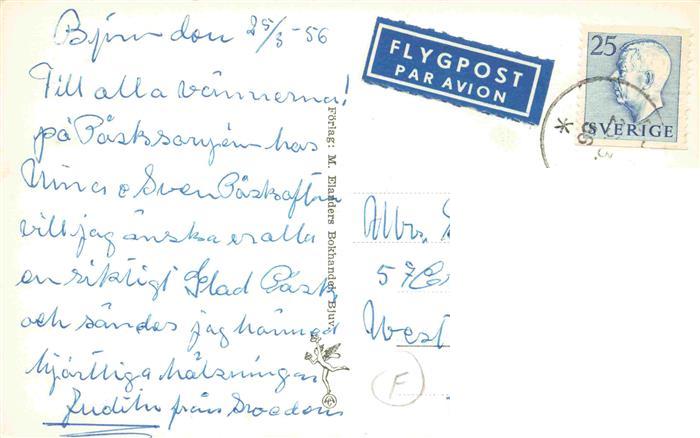 Bjuv den 25/3-56
Till alla vännerna!
på Påsksoryén hos
Nina o Sven Påskafton
vill jag önska er alla
en riktigt Glad Påsk
och sändes jag härmed
hjärtliga hälsningar
Judith från Sweden
Förlag: M. Elanders Bokhandel, Bjuv.
FLYGPOST
PAR AVION
25
SVERIGE
Mrs.
57
West
F